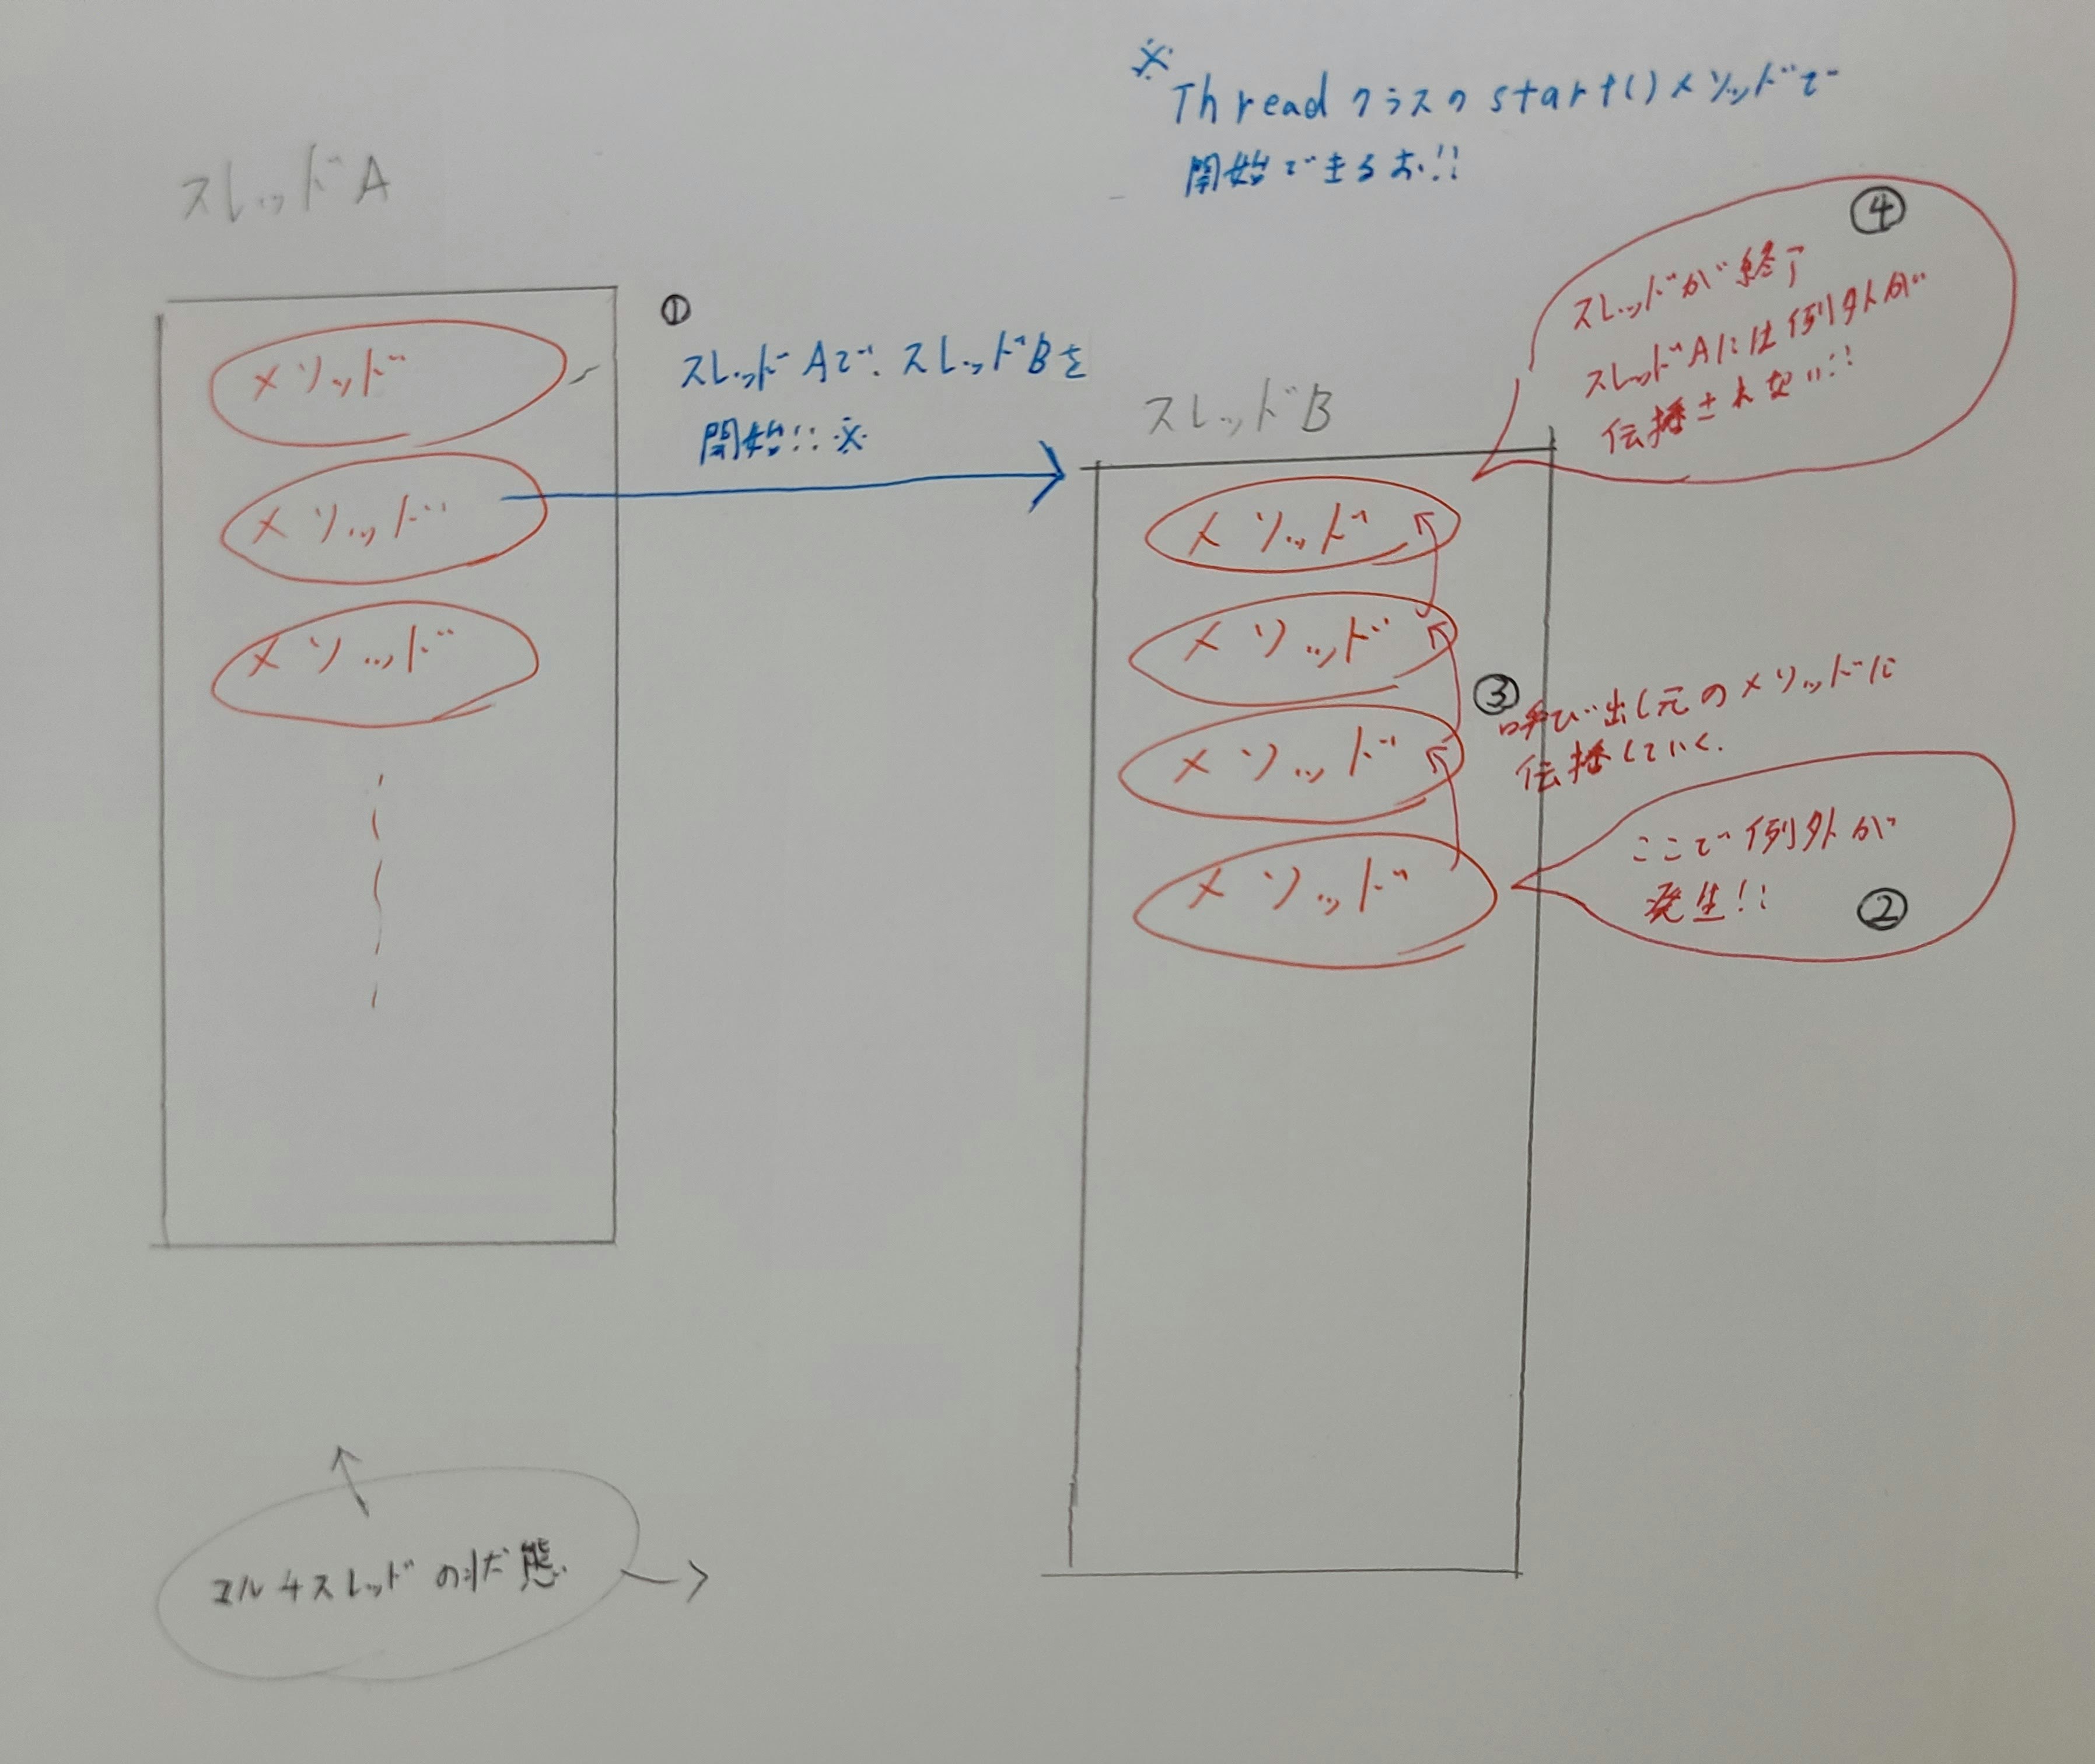 ※
Threadクラスのstart()メソッドで
開始できるお!!
スレッドA
メソッド
メソッド
メソッド
①
スレッドAで、スレッドBを
開始!!※
スレッドB
メソッド
メソッド
メソッド
メソッド
④
スレッドが終了
スレッドAには例外が
伝播されない!!
③
呼び出し元のメソッドに
伝播していく.
ここで例外が
発生!!
②
マルチスレッドの状態